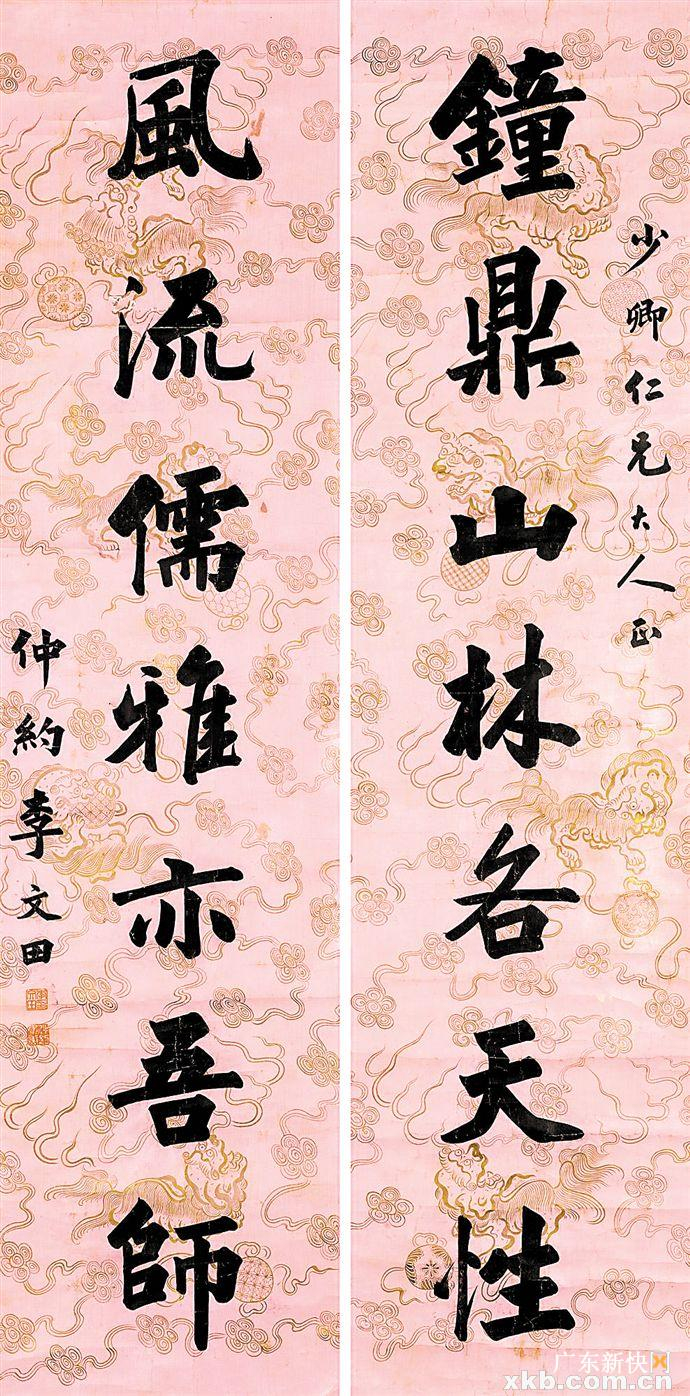 少卿仁兄大人正
鐘鼎山林各天性
風流儒雅亦吾師
仲約李文田
广东新快网
xkb.com.cn